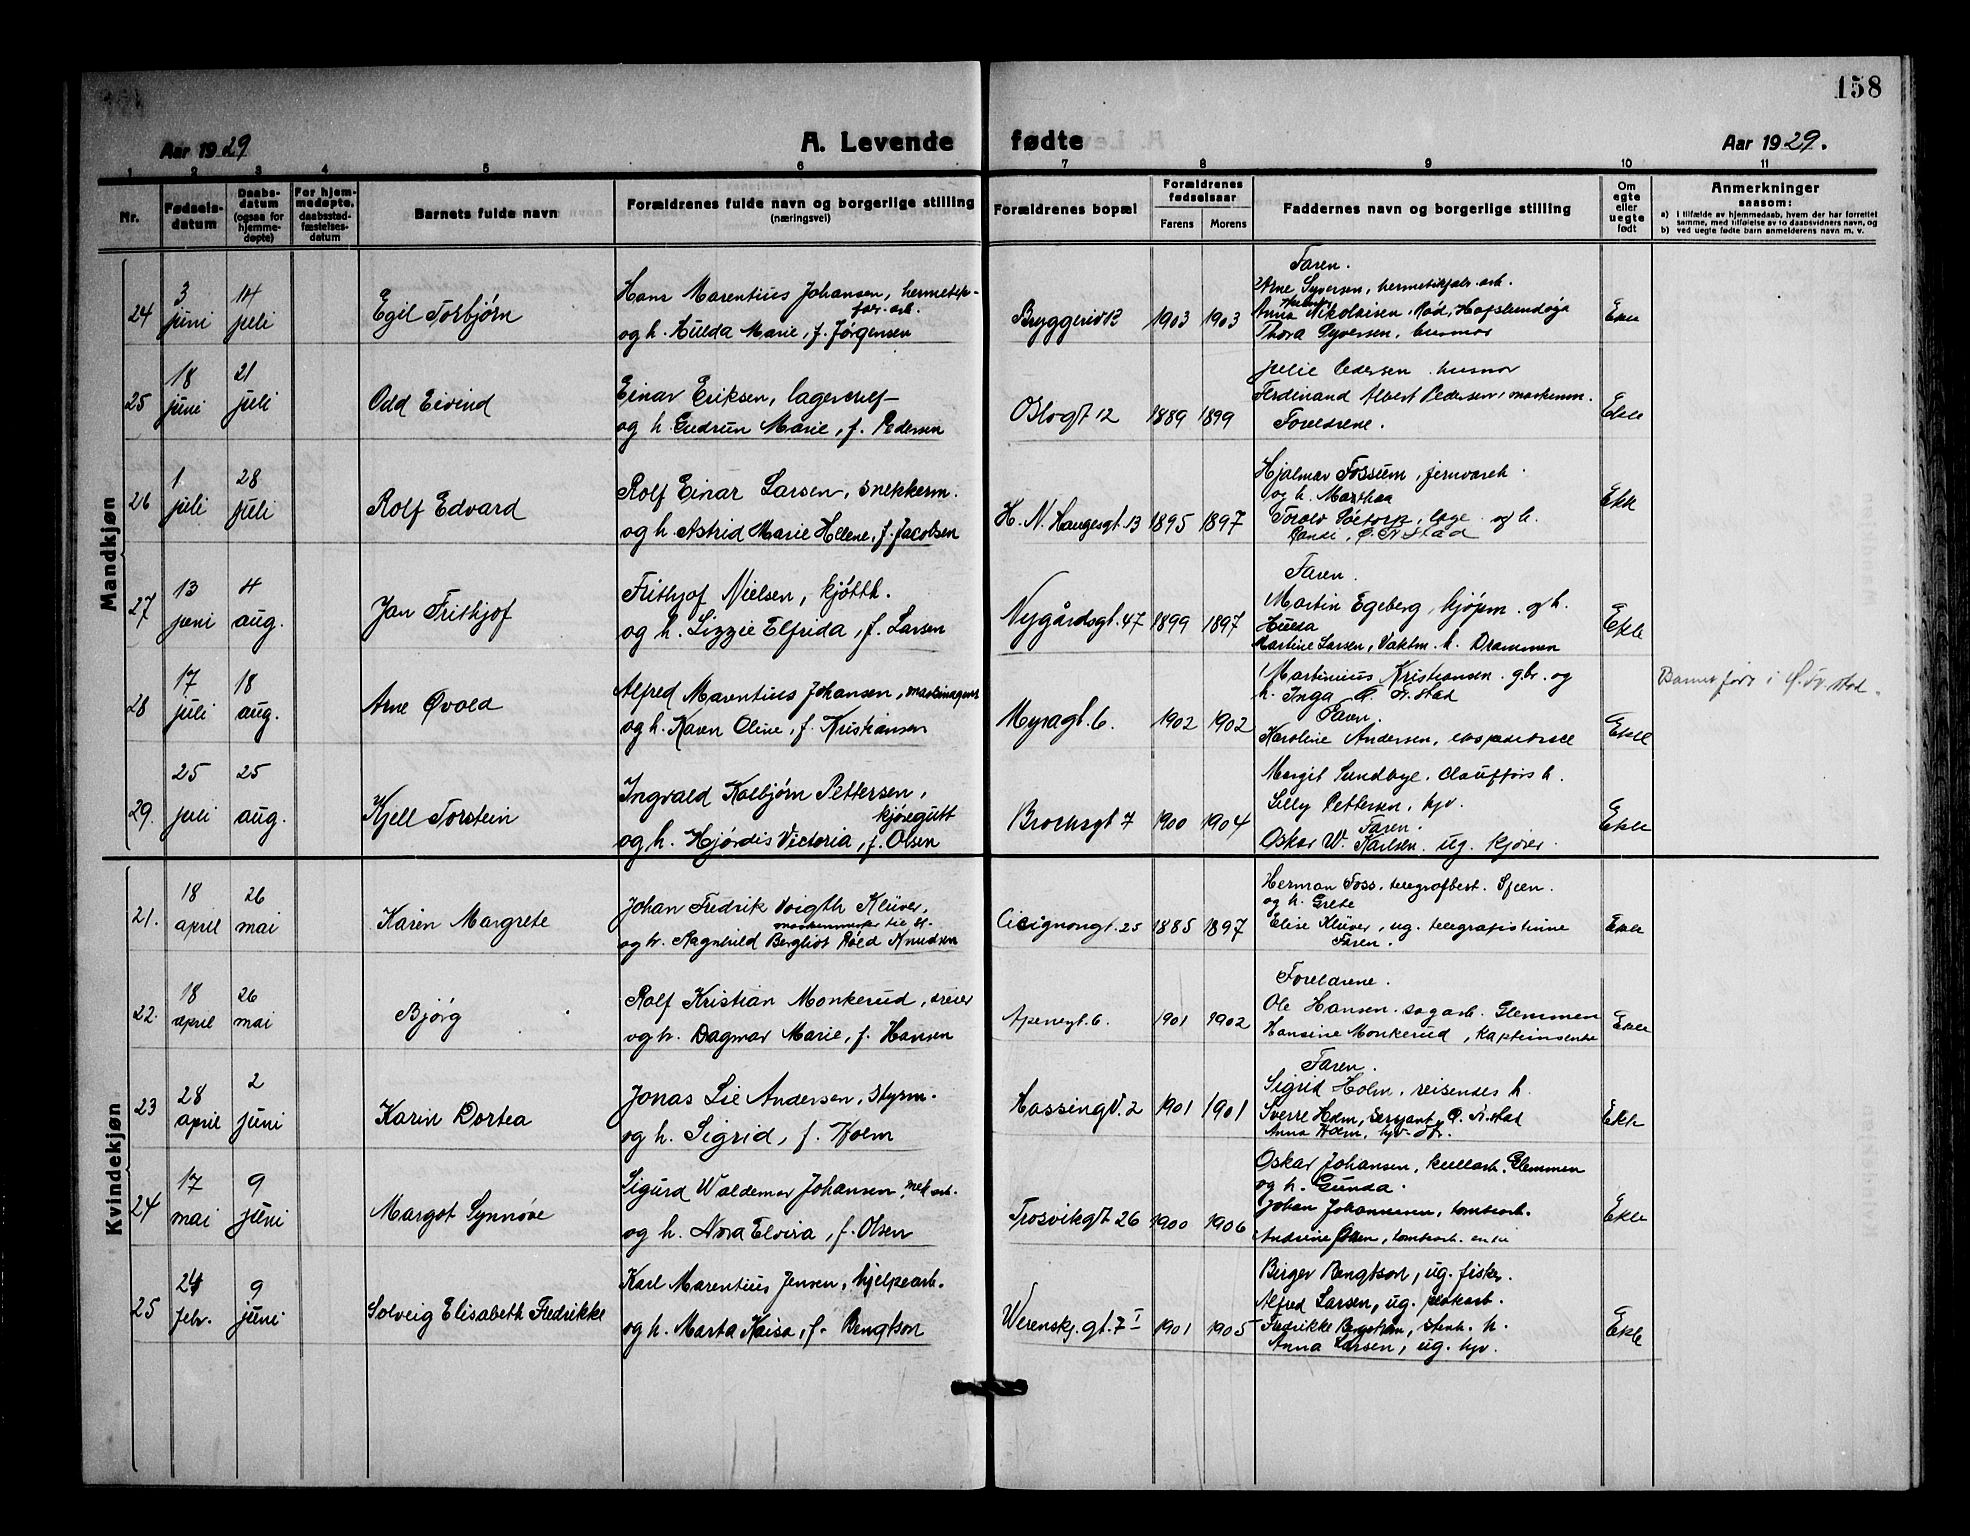 158
Aar 1929
A. Levende fødte
Aar 1929.
1 2 3 4 5 6 7 8 9 10 11
Nr.
Fødsels-
datum
Daabs-
datum
(ogsaa for
hjemme-
døpte)
For hjem-
medøpte,
daabsstad-
fæstelses-
datum
Barnets fulde navn
Forældrenes fulde navn og borgerlige stilling
(næringsvei)
Forældrenes bopæl
Forældrenes
fødselsaar
Farens Morens
Faddernes navn og borgerlige stilling
Om
egte
eller
uegte
født
Anmerkninger
saasom:
a) i tilfælde av hjemmedaab, hvem der har forrettet
samme, med tilføielse av to daabsvidners navn, og
b) ved uegte fødte barn anmelderens navn m. v.
Mandkjøn
24
3
juni
14
juli
Egil Torbjørn
Hans Marentius Johansen, hermetik-
fabr. arb.
og h. Hulda Marie, f. Jørgensen
Bryggeriv 12
1903
1903
Faren.
Arne Syversen, hermetikfabr. arb.
Anna Nikolaisen, Rød, Hafslundsøy
Thora Syversen, husmor
Ekte
25
18
juni
21
juli
Odd Eivind
Einar Eriksen, lagerchef
og h. Gudrun Marie, f. Pedersen
Oslogt 12
1889
1899
Julie Pedersen husmor
Ferdinand Albert Pedersen, maskinm.
Foreldrene.
Ekte
26
1
juli
28
juli
Rolf Edvard
Rolf Einar Larsen, snekkerm.
og h. Astrid Marie Helene, f. Jacobsen
H. N. Haugesgt. 13
1895
1897
Hjalmar Fossum, jernvareh.
og h. Marthea
Torolv og h.
Ø. Fr.stad
Ekte
27
13
juni
4
aug.
Jan Frithjof
Frithjof Nielsen, kjøtth.
og h. Lizzie Elfrida, f. Larsen
Nygårdsgt. 47
1899
1897
Faren.
Martin Egeberg, kjøpm. og h.
Hulda
Martine Larsen, vaktm. h. Drammen
Ekte
28
17
juli
18
aug.
Arne Øvald
Alfred Marentius Johansen,
og h. Karen Oline, f. Kristiansen
Myragt. 6.
1902
1902
Martinius Kristiansen gbr. og
h. Inga, Ø. Fr.stad
Faren.
Karoline Andersen, ekspeditrice
Ekte
Barnet født i Ø. Fr. stad.
29.
25
juli
25
aug.
Kjell Torstein
Ingvald Kolbjørn Pettersen,
kjøregutt
og h. Hjørdis Victoria, f. Olsen
Brochsgt 7
1900
1904
Margit Sundbye, chaufførs h.
Lilly Pettersen, hjv.
Faren.
Oskar W. Karlsen, ug. kjører.
Ekte
Kvindekjøn
21.
18
april
26
mai
Karen Margrete
Johan Fredrik Voigth Klüver,
og h. Ragnhild Bergliot Röed Knudsen
Cicignongt. 25
1885
1897
Herman Foss, telegrafbest. Skien.
og h. Grete
Elise Klüver, ug. telegrafistinne
Faren.
Ekte
22.
18
april
26
mai
Bjørg
Rolf Kristian Monkerud, dreier
og h. Dagmar Marie, f. Hansen
Apenesgt. 6.
1901
1902
Foreldrene.
Ole Hansen sagarb. Glemmen
Hansine Monkerud, kapteinsenke
Ekte
23
28
april
2
juni
Karin Dortea
Jonas Lie Andersen, styrm.
og h. Sigrid, f. Holm
Hassingv. 2
1901
1901
Faren.
Sigrid Holm, reisendes h.
Sverre Holm, sersjant, Ø. Fr.stad
Anna Holm, hjv.
Ekte
24
17
mai
9
juni
Margot Synnøve
Sigurd Waldemar Johansen, mek arb.
og h. Nora Elvira, f. Olsen
Trosvikgt 26
1900
1906
Oskar Johansen, kullarb. Glemmen
og h. Gunda.
Johan Johannesen, tomtearb.
Andrine Olsen, tomtearb. enke
Ekte
25
24
febr.
9
juni
Solveig Elisabeth Fredrikke
Karl Marentius Jensen, hjelpearb.
og h. Marta Kaisa, f. Bengtson
Werenskj. gt. 7 I
1901
1905
Birger Bengtson, ug. fisker.
Alfred Larsen, ug.
Fredrikke Bengtson, stenh. h.
Anna Larsen, ug. hjv.
Ekte